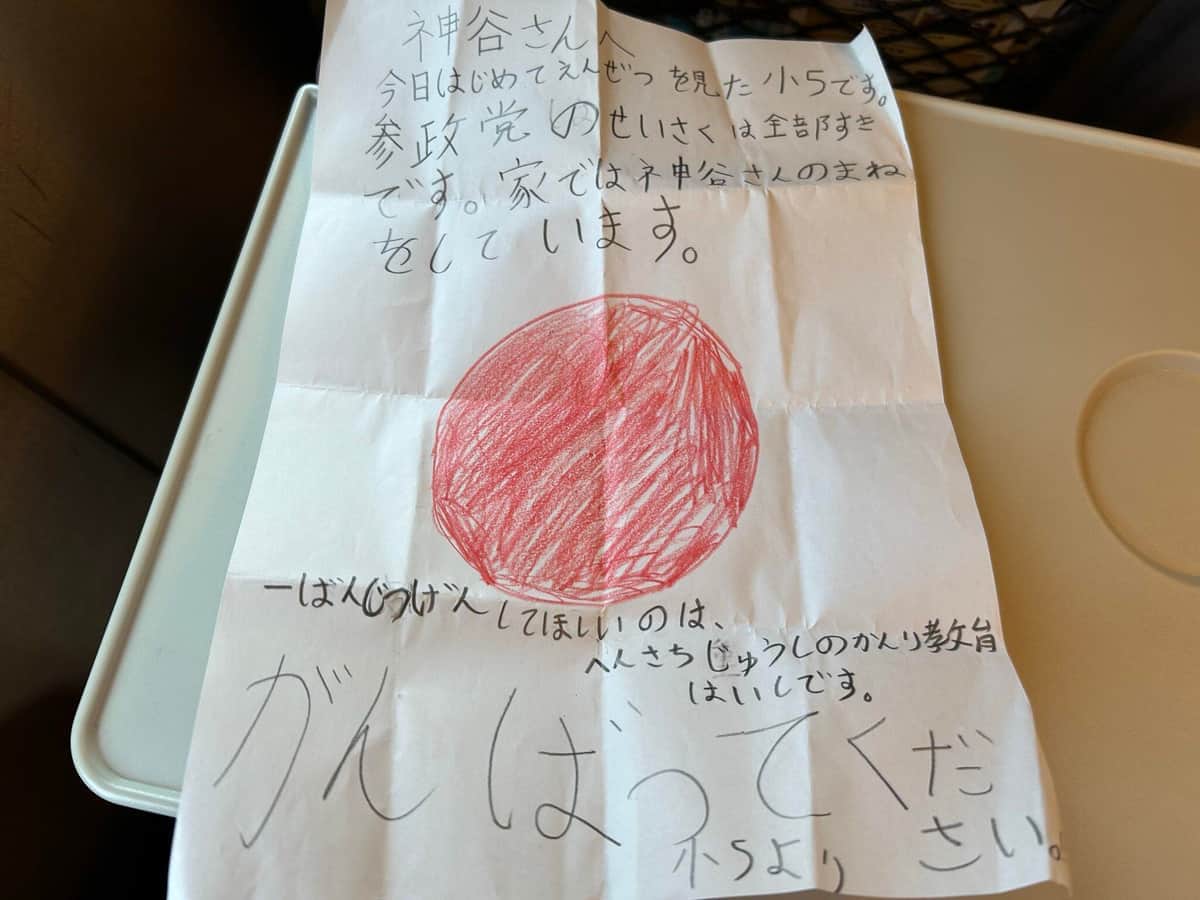 神谷さんへ
今日はじめてえんぜつを見た小5です。
参政党のせいさくは全部すき
です。家では神谷さんのまね
をしています。
一ばんじつげんしてほしいのは、
へんさちじゅうしのかんり教育
はいしです。
がんばってくだ
さい。
小5より